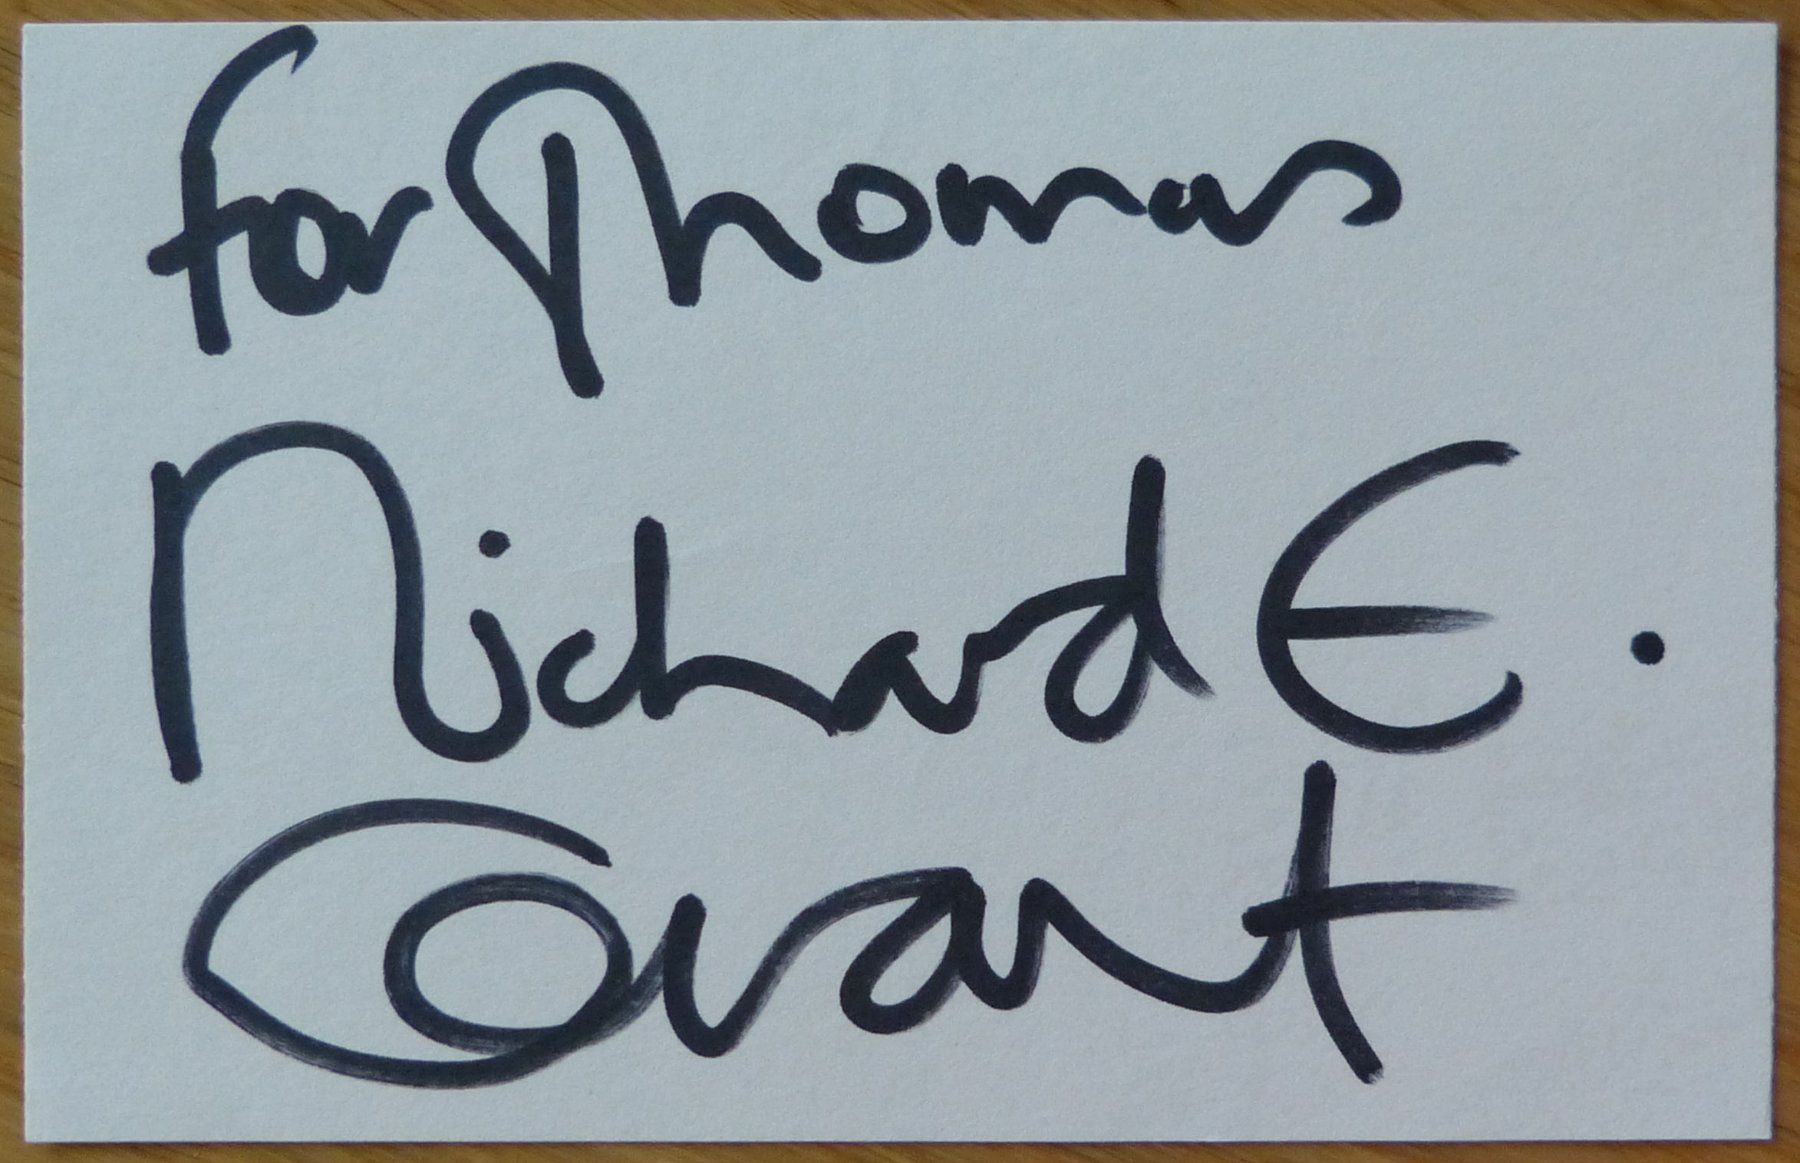 for Thomas
Richard E.
Grant